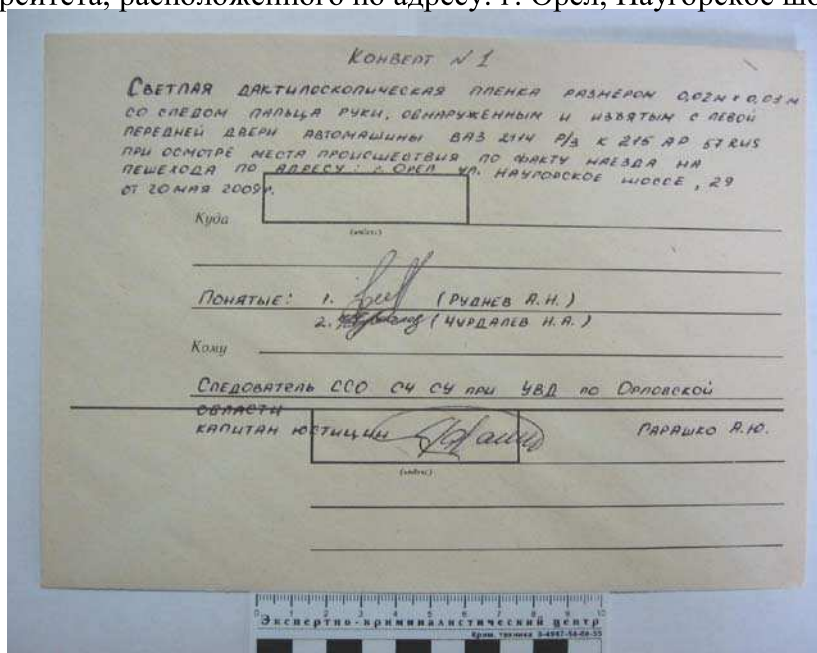 рситета, расположенного по адресу: г. Орел, Наугорское шо
КОНВЕРТ №1
СВЕТЛАЯ ДАКТИЛОСКОПИЧЕСКАЯ ПЛЕНКА РАЗМЕРОМ 0,02м × 0,03м
СО СЛЕДОМ ПАЛЬЦА РУКИ, ОБНАРУЖЕННЫМ И ИЗЪЯТЫМ С ЛЕВОЙ
ПЕРЕДНЕЙ ДВЕРИ АВТОМАШИНЫ ВАЗ 2114 Р/З К 215 АР 57 RUS
ПРИ ОСМОТРЕ МЕСТА ПРОИСШЕСТВИЯ ПО ФАКТУ НАЕЗДА НА
ПЕШЕХОДА ПО АДРЕСУ: г. ОРЕЛ УЛ. НАУГОРСКОЕ ШОССЕ, 29
ОТ 20 МАЯ 2009г.
Куда
(индекс)
ПОНЯТЫЕ: 1. (РУДНЕВ А.Н.)
2. (ЧУРДАЛЕВ Н.А.)
Кому
СЛЕДОВАТЕЛЬ ССО СЧ СУ ПРИ УВД ПО ОРЛОВСКОЙ
ОБЛАСТИ
КАПИТАН ЮСТИЦИИ ГАРАШКО А.Ю.
(индекс)
0 1 2 3 4 5 6 7 8 9 10
Экспертно-криминалистический центр
Крим. техника